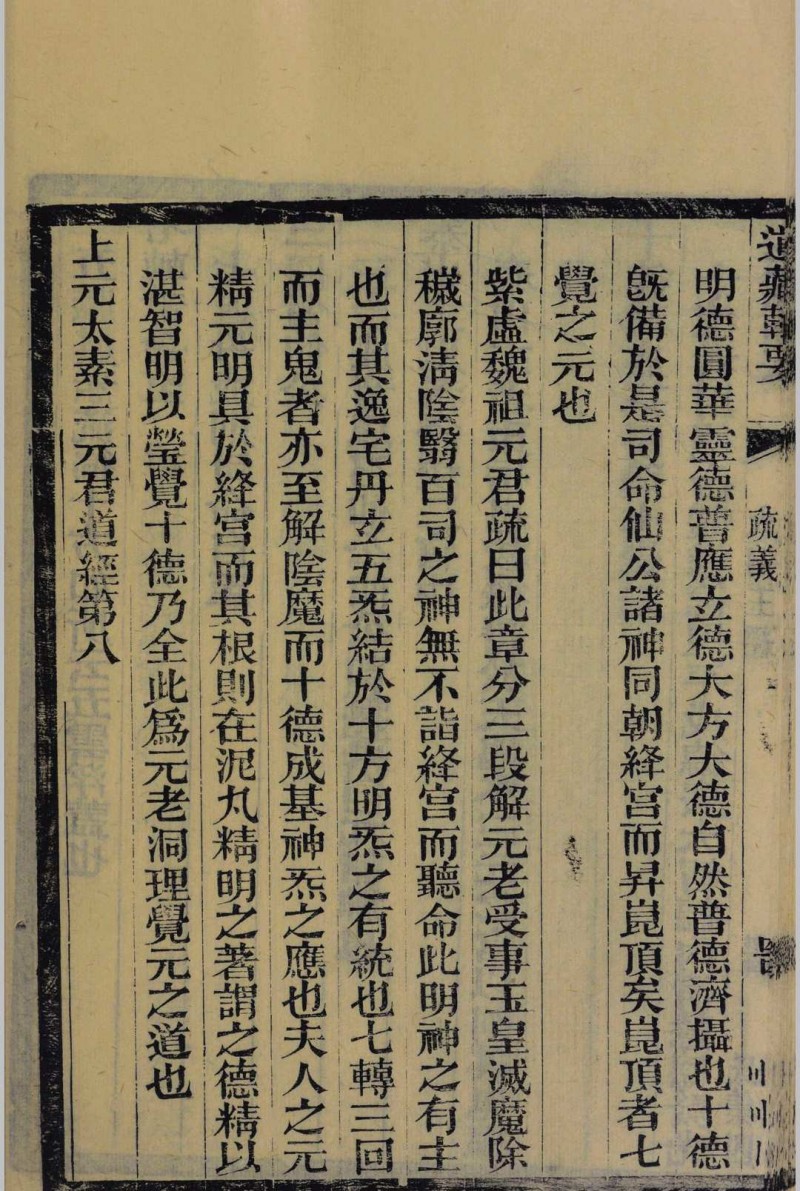 道藏輯要
疏義
明德圓華靈德普應立德大方大德自然普德濟攝也十德
旣備於是司命仙公諸神同朝絳宮而昇崑頂矣崑頂者七
覺之元也
紫虛魏祖元君疏曰此章分三段解元老受事玉皇滅魔除
穢廓淸陰翳百司之神無不詣絳宮而聽命此明神之有主
也而其逸宅丹立五炁結於十方明炁之有統也七轉三回
而主鬼者亦至解陰魔而十德成基神炁之應也夫人之元
精元明具於絳宮而其根則在泥丸精明之著謂之德精以
湛智明以瑩覺十德乃全此爲元老洞理覺元之道也
上元太素三元君道經第八